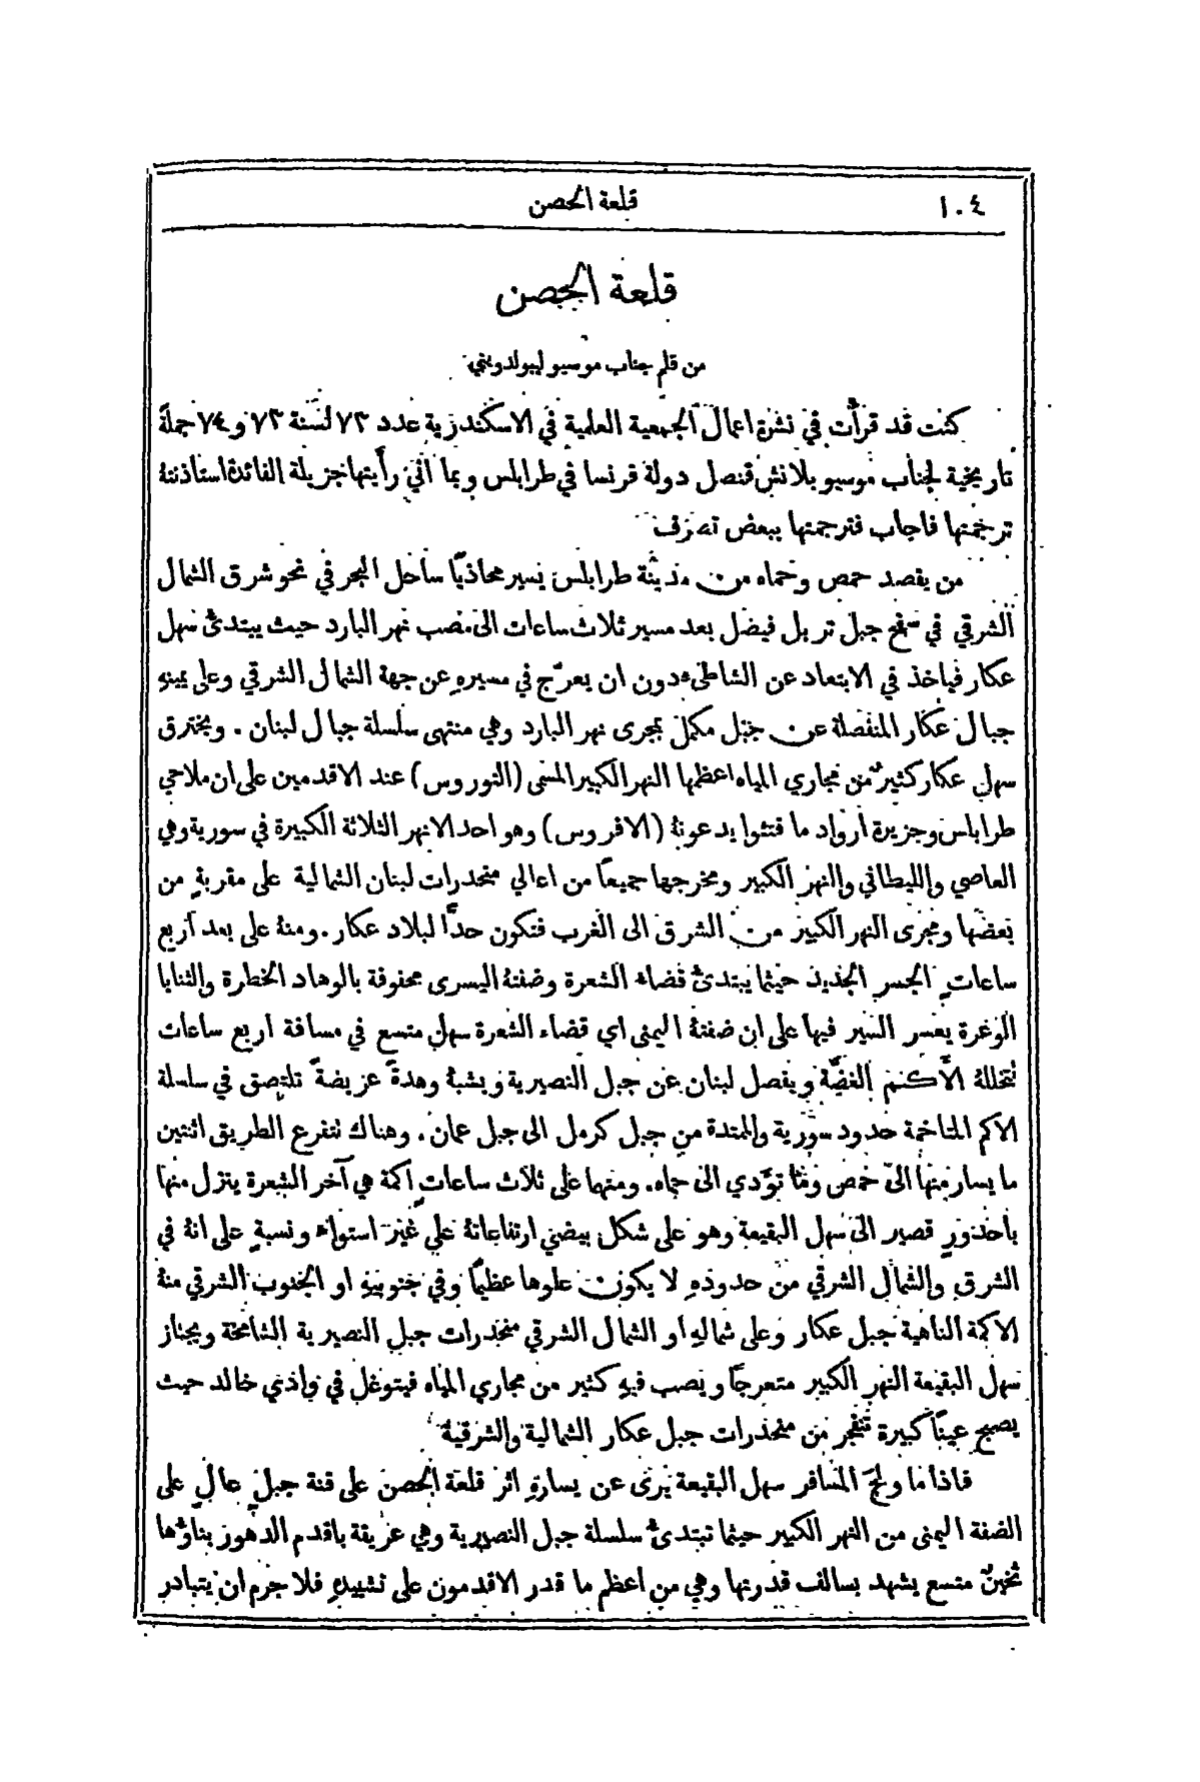 ١٠٤ قلعة الحصن
قلعة الحصن
من قلم جناب موسيو ليبولدويني
كنت قد قرأت في نشرة اعمال الجمعية العلمية في الاسكندرية عدد ٧٣ لسنة ٧٣ و٧٤ جملة
تاريخية لجناب موسيو بلانش قنصل دولة فرنسا في طرابلس وبما انني رأيتها جزيلة الفائدة استاذنتهُ
ترجمتها فاجاب فترجمتها ببعض تصرف
من يقصد حمص وحماه من مدينة طرابلس يسير محاذيًا ساحل البحر في نحو شرق الشمال
الشرقي في سفح جبل تربل فيضل بعد مسير ثلاث ساعات الى مصب نهر البارد حيث يبتدئ سهل
عكار فياخذ في الابتعاد عن الشاطئ دون ان يعرّج في مسيرهِ عن جهة الشمال الشرقي وعلى يمينهِ
جبال عكار المنفصلة عن جبل مكمل بمجرى نهر البارد وهي منتهى سلسلة جبال لبنان . ويخترق
سهل عكار كثيرٌ من مجاري المياه اعظمها النهر الكبير المسمى (النوروس) عند الاقدمين على ان ملاحي
طرابلس وجزيرة ارواد ما فتئوا يدعونهُ (الافروس) وهو احد الانهر الثلاثة الكبيرة في سورية وهي
العاصي والليطاني والنهر الكبير ومخرجها جميعًا من اعالي منحدرات لبنان الشمالية على مقربةٍ من
بعضها ومجرى النهر الكبير من الشرق الى الغرب فتكون حدًّا لبلاد عكار . ومنهُ على بعد اربع
ساعاتٍ الجسر الجديد حيثما يبتدئ قضاء الشعرة وضفتهُ اليسرى محفوفة بالوهاد الخطرة والثنايا
الوعرة يعسر السير فيها على ان ضفتهُ اليمنى اي قضاء الشعرة سهل متسع في مسافة اربع ساعات
تتخللهُ الأكم الغضَّة ويفصل لبنان عن جبل النصيرية ويشبهُ وهدةً عريضةً تلتصق في سلسلة
الاكم المتاخمة حدود سورية والممتدة من جبل كرمل الى جبل عمان . وهناك تتفرع الطريق اثنتين
ما يسار منها الى حمص وما تؤَدي الى حماه . ومنهما على ثلاث ساعاتٍ اكمة هي آخر الشعرة ينزل منها
باحدورٍ قصير الى سهل البقيعة وهو على شكل بيضي ارتفاعاتهُ على غير استواء ونسبةٍ على انهُ في
الشرق والشمال الشرقي من حدودهِ لا يكون علوها عظيمًا وفي جنوبيهِ او الجنوب الشرقي منهُ
الاكمة الناهية جبل عكار وعلى شمالهِ او الشمال الشرقي منحدرات جبل النصيرية الشامخة ويجتاز
سهل البقيعة النهر الكبير متعرجًا ويصب فيهِ كثير من مجاري المياه فيتوغل في وادي خالد حيث
يصبح عينًا كبيرة تنفجر من منحدرات جبل عكار الشمالية والشرقية
فاذا ما ولج المسافر سهل البقيعة يرى عن يسارهِ اثر قلعة الحصن على قنة جبلٍ عالٍ على
الضفة اليمنى من النهر الكبير حيثما تبتدئ سلسلة جبل النصيرية وهي عريقة باقدم الدهور بناؤها
ثخينٌ متسع يشهد بسالف قدرتها وهي من اعظم ما قدر الاقدمون على تشييدهِ فلا جرم ان يتبادر